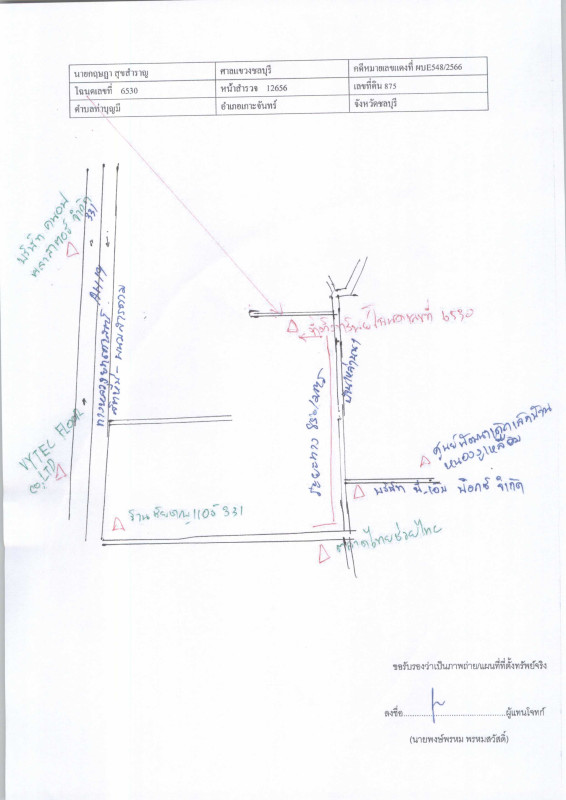 นายกฤษฎา สุขสำราญ ศาลแขวงชลบุรี คดีหมายเลขแดงที่ ผบE548/2566
โฉนดเลขที่ 6530 หน้าสำรวจ 12656 เลขที่ดิน 875
ตำบลท่าบุญมี อำเภอเกาะจันทร์ จังหวัดชลบุรี
บริษัท
พลาสเตอร์ จำกัด
331
ทางหลวงหมายเลข
สัตหีบ - พนมสารคาม
ที่ตั้งทรัพย์โฉนดเลขที่ 6530
ระยะทาง
ศูนย์พัฒนาเด็กเล็กบ้าน
หนองงูเหลือม
บริษัท พี-เอม พ็อกซ์ จำกัด
VYTEL FLOAT
CO.,LTD
ร้าน 331
ตลาดไทยช่วยไทย
ขอรับรองว่าเป็นภาพถ่าย/แผนที่ที่ตั้งทรัพย์จริง
ลงชื่อ..........................................ผู้แทนโจทก์
(นายพงษ์พรหม พรหมสวัสดิ์)